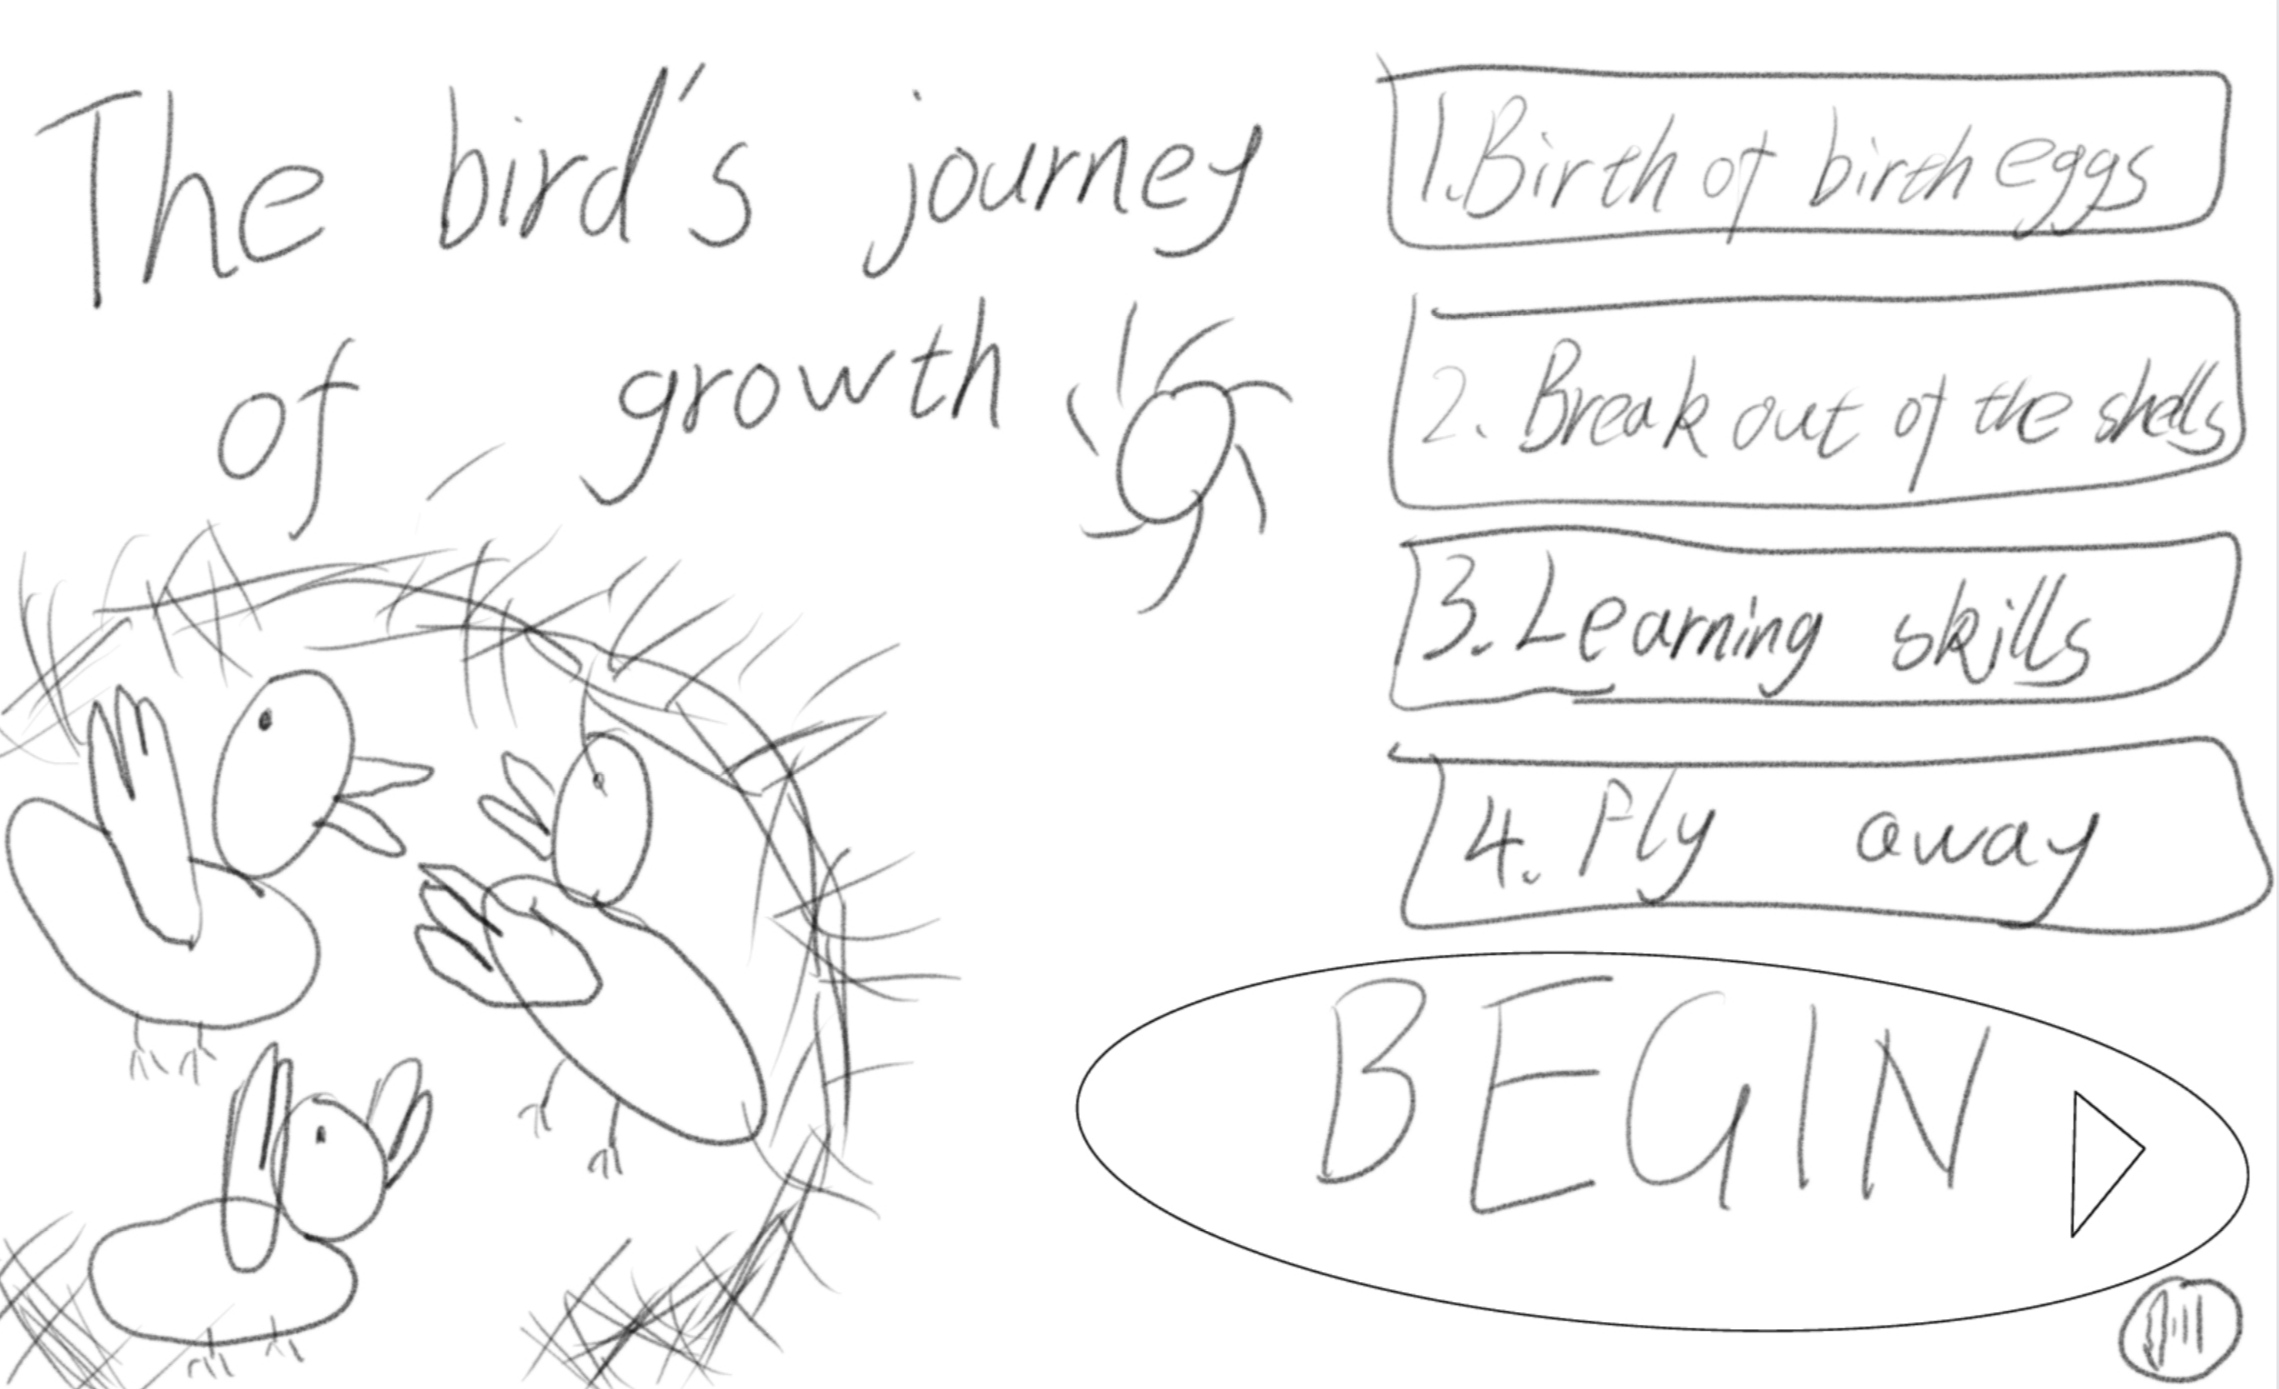 The bird's journey
of growth
1. Birth of birth eggs
2. Break out of the shells
3. Learning skills
4. Fly away
BEGIN